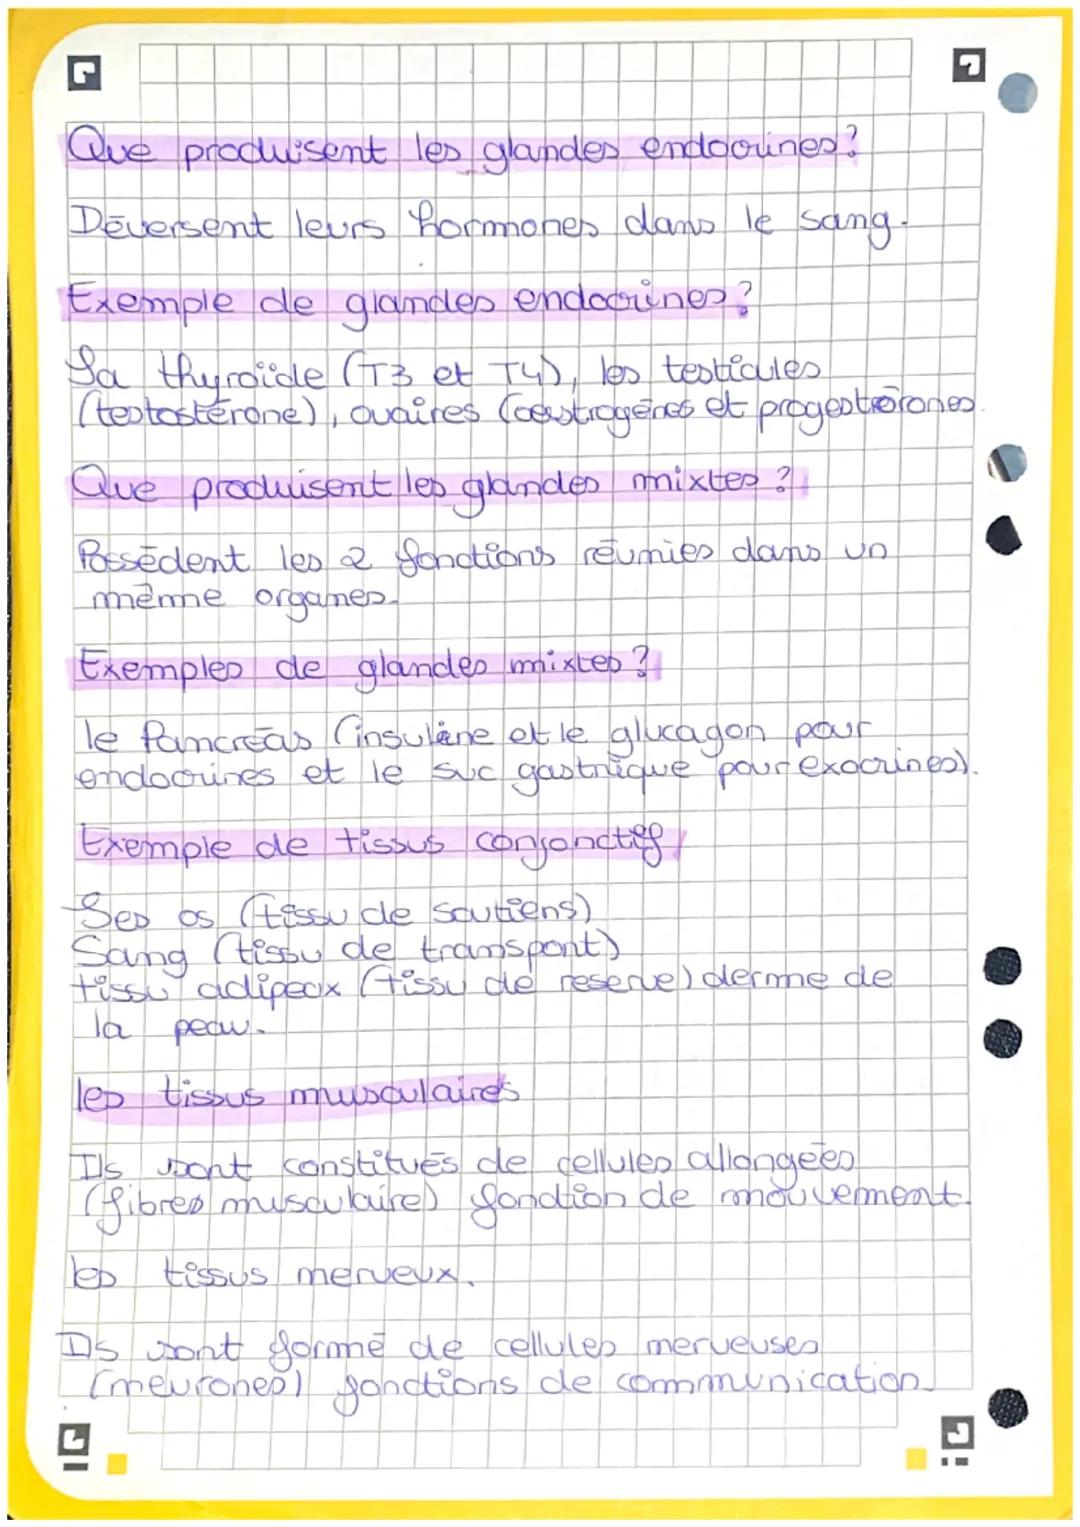 Que produisent les glandes endocrines?
Déversent leurs hormones dans le sang.
Exemple de glandes endocrines?
La thyroïde (T3 et T4), les testicules
(testostérone), ovaires (oestrogènes et progestérones.
Que produisent les glandes mixtes ?
Possèdent les 2 fonctions réunies dans un
même organes.
Exemples de glandes mixtes?
le Pancréas (insuline et le glucagon pour
endocrines et le suc gastrique pour exocrines).
Exemple de tissus conjonctif
Les os (tissu de soutiens)
Sang (tissu de transport)
tissu adipeux (tissu de reserve) derme de
la peau.
les tissus musculaires
Ils sont constitués de cellules allongées
(fibres musculaire) fonction de mouvement.
les tissus nerveux.
Ils sont formé de cellules nerveuses
(neurones) fonctions de communication.